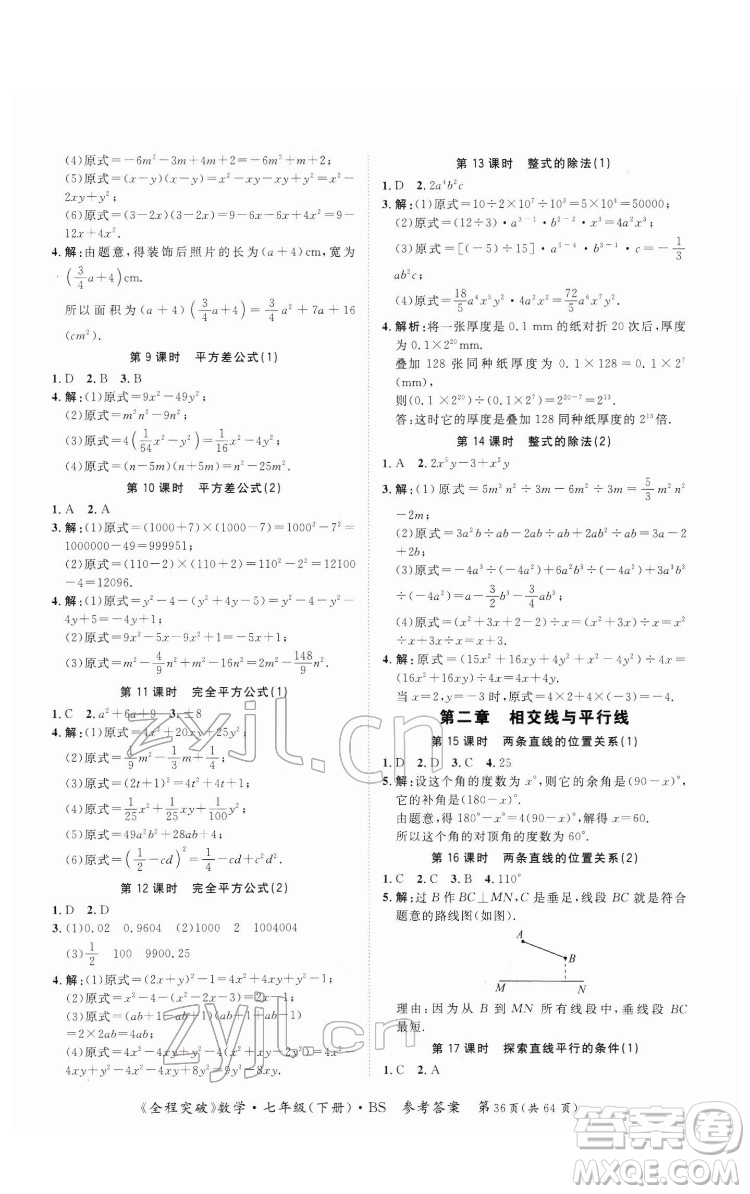 (4)原式=-6m²-3m+2m+1=-6m²-m+1.
(5)原式=(x-y)(x-y)=x²-xy-xy+y²=x²-
2xy+y²;
(6)原式=(3-2x)(3-2x)=9-6x-6x+4x²=9-
12x+4x².
4.解:由题意,得装饰后照片的长为(a+4)cm,宽为
(3/4 a+4)cm.
所以面积为(a+4)(3/4 a+4)=3/4 a²+7a+16
(cm²).
第9课时 平方差公式(1)
1.D 2.B 3.B
4.解:(1)原式=9x²-4y²;
(2)原式=m²n²-9n²;
(3)原式=4(1/64 x²-4y²)=1/16 x²-16y²;
(4)原式=(n-5m)(n+5m)=n²-25m².
第10课时 平方差公式(2)
1.A 2.A
3.解:(1)原式=(1000+7)×(1000-7)=1000²-7²=
1000000-49=999951;
(2)原式=(110-2)×(110+2)=110²-2²=12100
-4=12096.
4.解:(1)原式=y²-4-y²-4y+5=y²-4-y²-
4y+5=-4y+1;
(2)原式=m²-4/9 n²+m²-16n²=2m²-148/9 n².
第11课时 完全平方公式(1)
1.C 2.a²+6a+9 3.±8
4.解:(1)原式=4x²+20xy+25y²;
(2)原式=4/9 m²
(3)原式=(2t+1)²=4t²+4t+1;
(4)原式=1/25 x²+1/5 x+
(5)原式=49a²b²+28ab+4;
(6)原式=(1/2-cd)²=1/4-cd+c²d².
第12课时 完全平方公式(2)
1.D 2.D
3.(1)0.02 0.9604 (2)1000 2 1004004
(3)1/2 100 9900.25
4.解:(1)原式=(2x+y)²-1=4x²+4xy+y²-1;
(2)原式=
(3)原式=(ab+1-ab+1)(ab+1+ab-1)
=2×2ab=4ab;
(4)原式=4x²-4xy+y²-4(x²+
4x²-4xy+y²-4x²-4xy+8y²=9y²-8xy.
第13课时 整式的除法(1)
1.D 2.2a⁴b²c
3.解:(1)原式=10÷2×10⁷÷10³=5×10⁴=50000;
(2)原式=(12÷3)·a³⁻¹·b²⁻²=4a²;
(3)原式=[(-5)÷15]·a⁵⁻⁴·b³⁻¹·c=-1/3
ab²c;
(4)原式=18/5 a⁴x⁵y²÷1/4 a²x⁴=72/5 a²xy².
4.解析:将一张厚度是0.1 mm的纸对折20次后,厚度为:
0.1×2²⁰mm;
叠加128张同种纸的厚度为:0.1×128=0.1×2⁷
(mm).
则(0.1×2²⁰)÷(0.1×2⁷)=2²⁰⁻⁷=2¹³.
答:这时它的厚度是叠加128同种纸厚度的2¹³倍.
第14课时 整式的除法(2)
1.A 2.2x⁵y-3+x²y
3.解:(1)原式=5m³n²÷3m-6m²÷3m=5/3 m²n²
-2m;
(2)原式=3a²b÷ab-2ab²÷ab+ab÷ab=3a
-2b+1;
(3)原式=-4a³÷(-4a²)+6a²b³÷(-4a²)+3a²
÷(-4a²)=a-3/2 b³-3/4;
(4)原式=(x²+3x+2+2x-2-2x)÷x=(x²+3x)
÷x=x²÷x+3x÷x=x+3.
4.解:原式=(15x²+16xy+4y²+x²-4y²)÷4x=
(16x²+16xy)÷4x=4x+4y.
当x=2,y=4时,原式=4×2+4×4=24.
第二章 相交线与平行线
第15课时 两条直线的位置关系(1)
1.D 2.D 3.C 4.25
5.解:设这个角的度数为x°,则它的余角是(90-x)°,
它的补角是(180-x)°.
由题意,得180°-x°=4(90-x)°,解得x=60.
所以这个角的对顶角的度数为60°.
第16课时 两条直线的位置关系(2)
1.C 2.C 3.A 4.110°
5.解:过B作BC⊥MN,C是垂足,线段BC就是符合
题意的路线图(如图).
A
B
M N
理由:因为从B到MN所有线段中,垂线段BC
最短.
第17课时 探索直线平行的条件(1)
1.C 2.A 3.C
《全程突破》数学·七年级(下册)·BS 参考答案 第36页(共64页)
zyjl.cn
zyjl.cn
答案圈
MXQE.COM